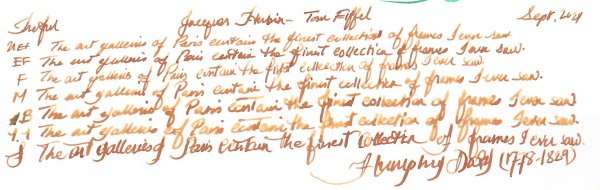 Jacques Herbin - Tour Eiffel Sept. 2021
EEF The art galleries of Paris contain the finest collection of frames I ever saw.
EF The art galleries of Paris contain the finest collection of frames I ever saw.
F The art galleries of Paris contain the finest collection of frames I ever saw.
M The art galleries of Paris contain the finest collection of frames I ever saw.
B The art galleries of Paris contain the finest collection of frames I ever saw.
1.1 The art galleries of Paris contain the finest collection of frames I ever saw.
J The art galleries of Paris contain the finest collection of frames I ever saw.
Humphry Davy (1778-1829)